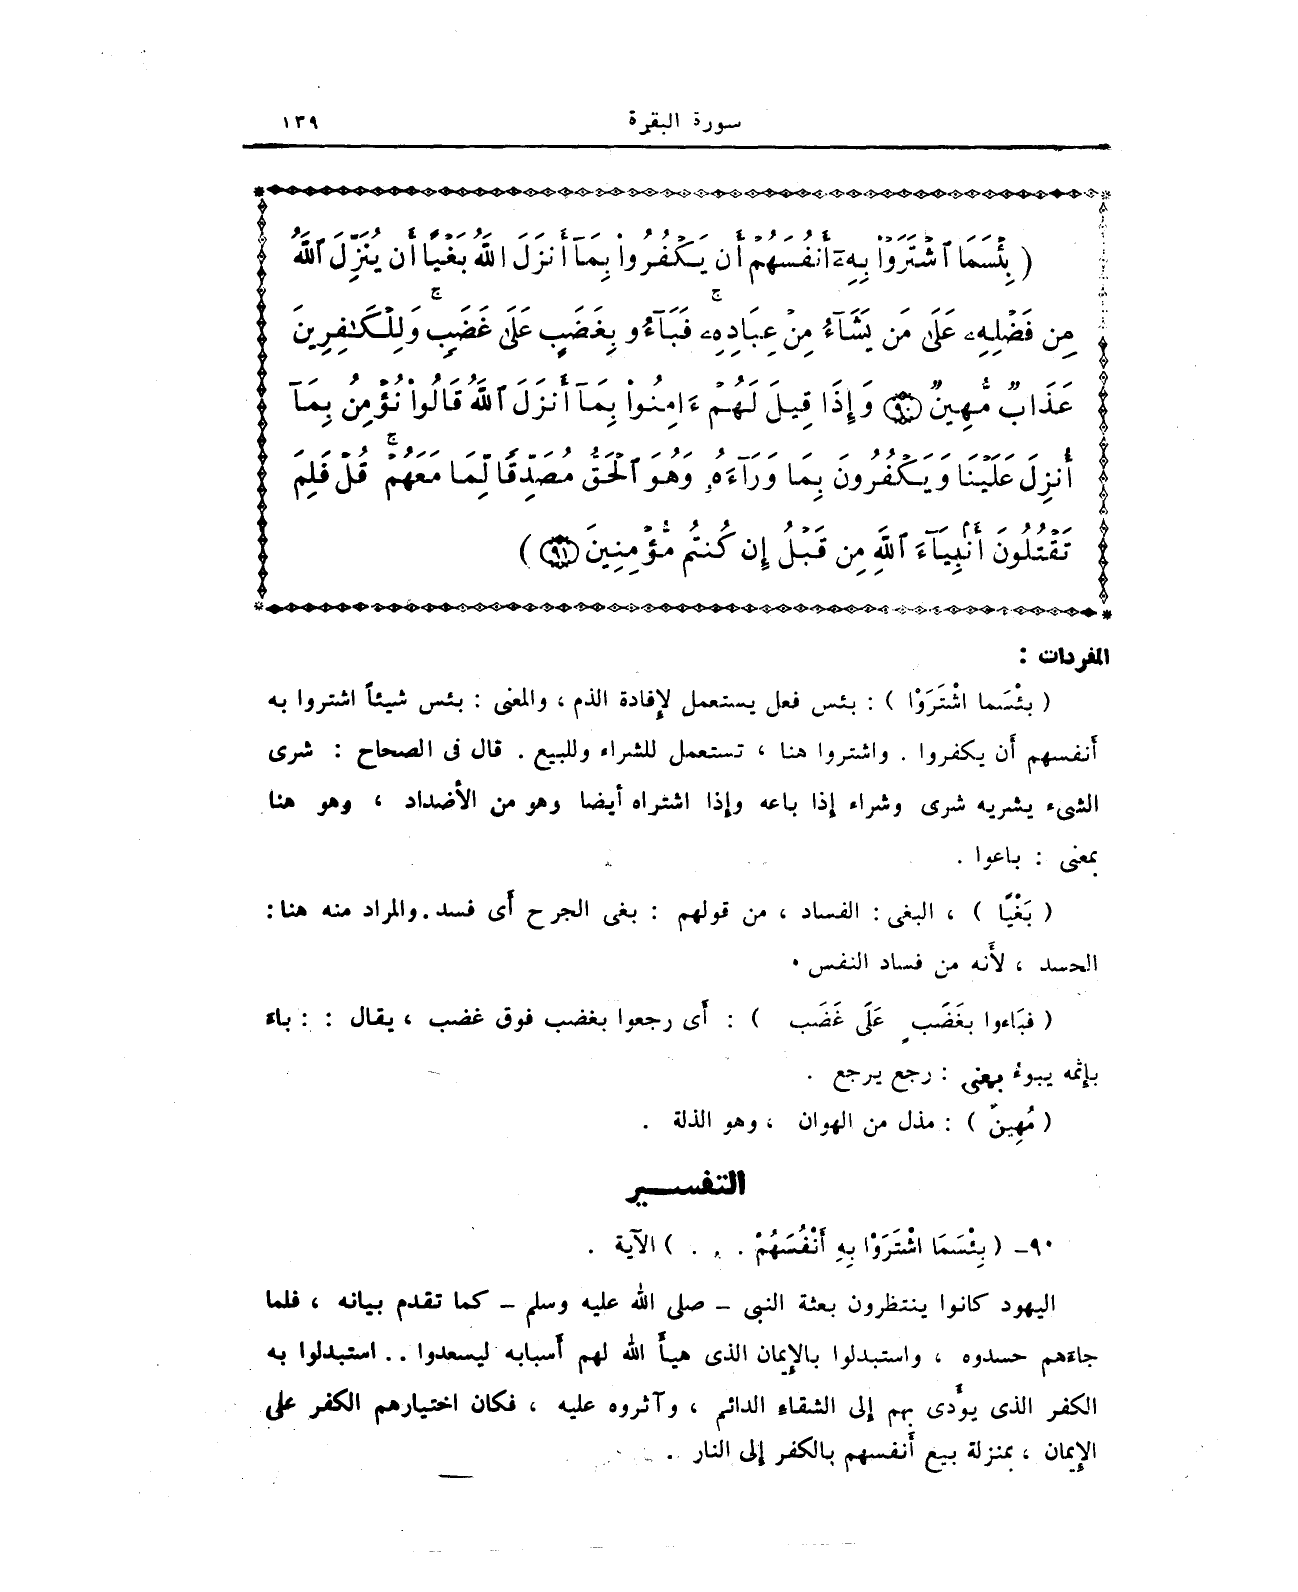 سورة البقرة ١٣٩
( بِئْسَمَا ٱشْتَرَوْا۟ بِهِۦٓ أَنفُسَهُمْ أَن يَكْفُرُوا۟ بِمَآ أَنزَلَ ٱللَّهُ بَغْيًا أَن يُنَزِّلَ ٱللَّهُ
مِن فَضْلِهِۦ عَلَىٰ مَن يَشَآءُ مِنْ عِبَادِهِۦ ۚ فَبَآءُو بِغَضَبٍ عَلَىٰ غَضَبٍ ۚ وَلِلْكَـٰفِرِينَ
عَذَابٌ مُّهِينٌ ۝٩٠ وَإِذَا قِيلَ لَهُمْ ءَامِنُوا۟ بِمَآ أَنزَلَ ٱللَّهُ قَالُوا۟ نُؤْمِنُ بِمَآ
أُنزِلَ عَلَيْنَا وَيَكْفُرُونَ بِمَا وَرَآءَهُۥ وَهُوَ ٱلْحَقُّ مُصَدِّقًا لِّمَا مَعَهُمْ ۗ قُلْ فَلِمَ
تَقْتُلُونَ أَنۢبِيَآءَ ٱللَّهِ مِن قَبْلُ إِن كُنتُم مُّؤْمِنِينَ ۝٩١ )
المفردات :
( بِئْسَما اشْتَرَوْا ) : بئس فعل يستعمل لإفادة الذم ، والمعنى : بئس شيئاً اشتروا به
أنفسهم أن يكفروا . واشتروا هنا ، تستعمل للشراء وللبيع . قال فى الصحاح : شرى
الشىء يشريه شرى وشراء إذا باعه وإذا اشتراه أيضا وهو من الأضداد ، وهو هنا
بمعنى : باعوا .
( بَغْيًا ) ، البغى : الفساد ، من قولهم : بغى الجرح أى فسد . والمراد منه هنا :
الحسد ، لأنه من فساد النفس .
( فبَاءوا بغَضَبٍ عَلَى غَضَب ) : أى رجعوا بغضب فوق غضب ، يقال : : باءَ
بإثمه يبوءُ بمعنى : رجع يرجع .
( مُهِينٌ ) : مذل من الهوان ، وهو الذلة .
التفسـير
٩٠ـ ( بِئْسَمَا اشْتَرَوْا بِهِ أَنْفُسَهُمْ . . . ) الآية .
اليهود كانوا ينتظرون بعثة النبى - صلى الله عليه وسلم - كما تقدم بيانه ، فلما
جاءهم حسدوه ، واستبدلوا بالإيمان الذى هيأ الله لهم أسبابه ليسعدوا .. استبدلوا به
الكفر الذى يؤدى بهم إلى الشقاء الدائم ، وآثروه عليه ، فكان اختيارهم الكفر على
الإيمان ، بمنزلة بيع أنفسهم بالكفر إلى النار .